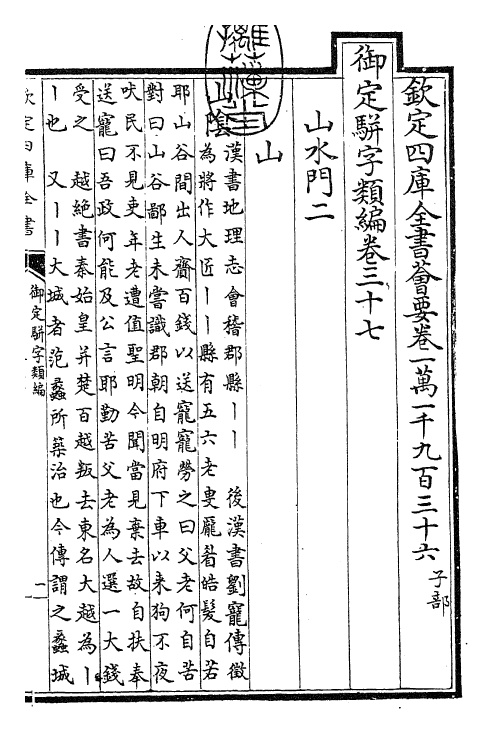 欽定四庫全書薈要卷一萬一千九百三十六 子部
御定駢字類編卷三十七
山水門二
山
山陰 漢書地理志會稽郡縣丨丨 後漢書劉寵傳徵
為將作大匠丨丨縣有五六老叟龎眉皓髮自若
耶山谷間出人齎百錢以送寵寵勞之曰父老何自苦
對曰山谷鄙生未嘗識郡朝自明府下車以來狗不夜
吠民不見吏年老遭值聖明今聞當見棄去故自扶奉
送寵曰吾政何能及公言耶勤苦父老為人選一大錢
受之 越絶書秦始皇并楚百越叛去東名大越為丨
丨也 又丨丨大城者范蠡所築治也今傳謂之蠡城
欽定四庫全書
御定駢字類編
一